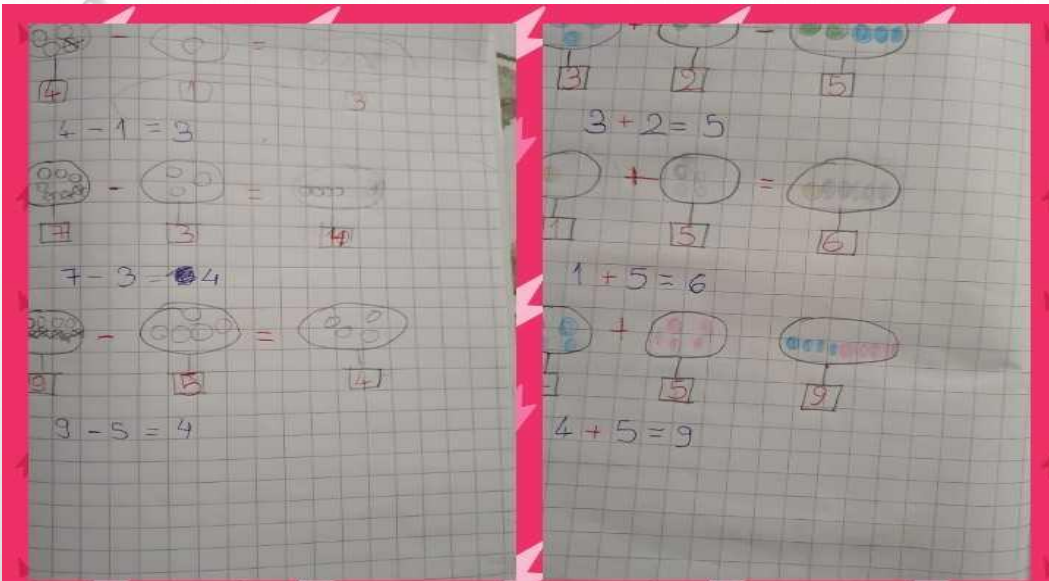 - =
4 1 3
4 - 1 = 3
- =
7 3 4
7 - 3 = 4
- =
9 5 4
9 - 5 = 4
+ -
3 2 5
3 + 2 = 5
+ =
1 5 6
1 + 5 = 6
+
5 9
4 + 5 = 9